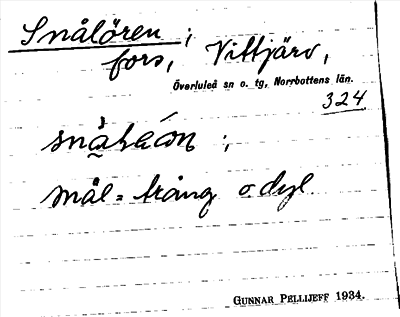 Snålören ;
fors, Vittjärv,
Överluleå sn o. tg, Norrbottens län.
324
mål = trång o. dyl.
GUNNAR PELLIJEFF 1934.